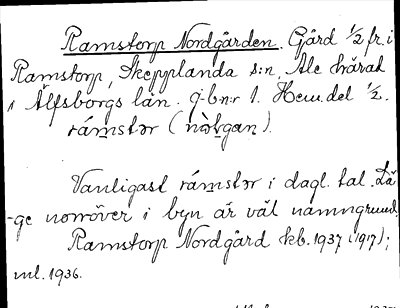 Ramstorp Nordgården. Gård 1/2 fr. i
Ramstorp, Skepplanda s:n, Ale härad
i Älfsborgs län. j-b-n:r 1. Hem.del 1/2.
rámstər (nòḷgan).
Vanligast rámstər i dagl. tal. Lä-
-ge norröver i byn är väl namngrund.
Ramstorp Nordgård kb. 1937 (1917);
ml. 1936.